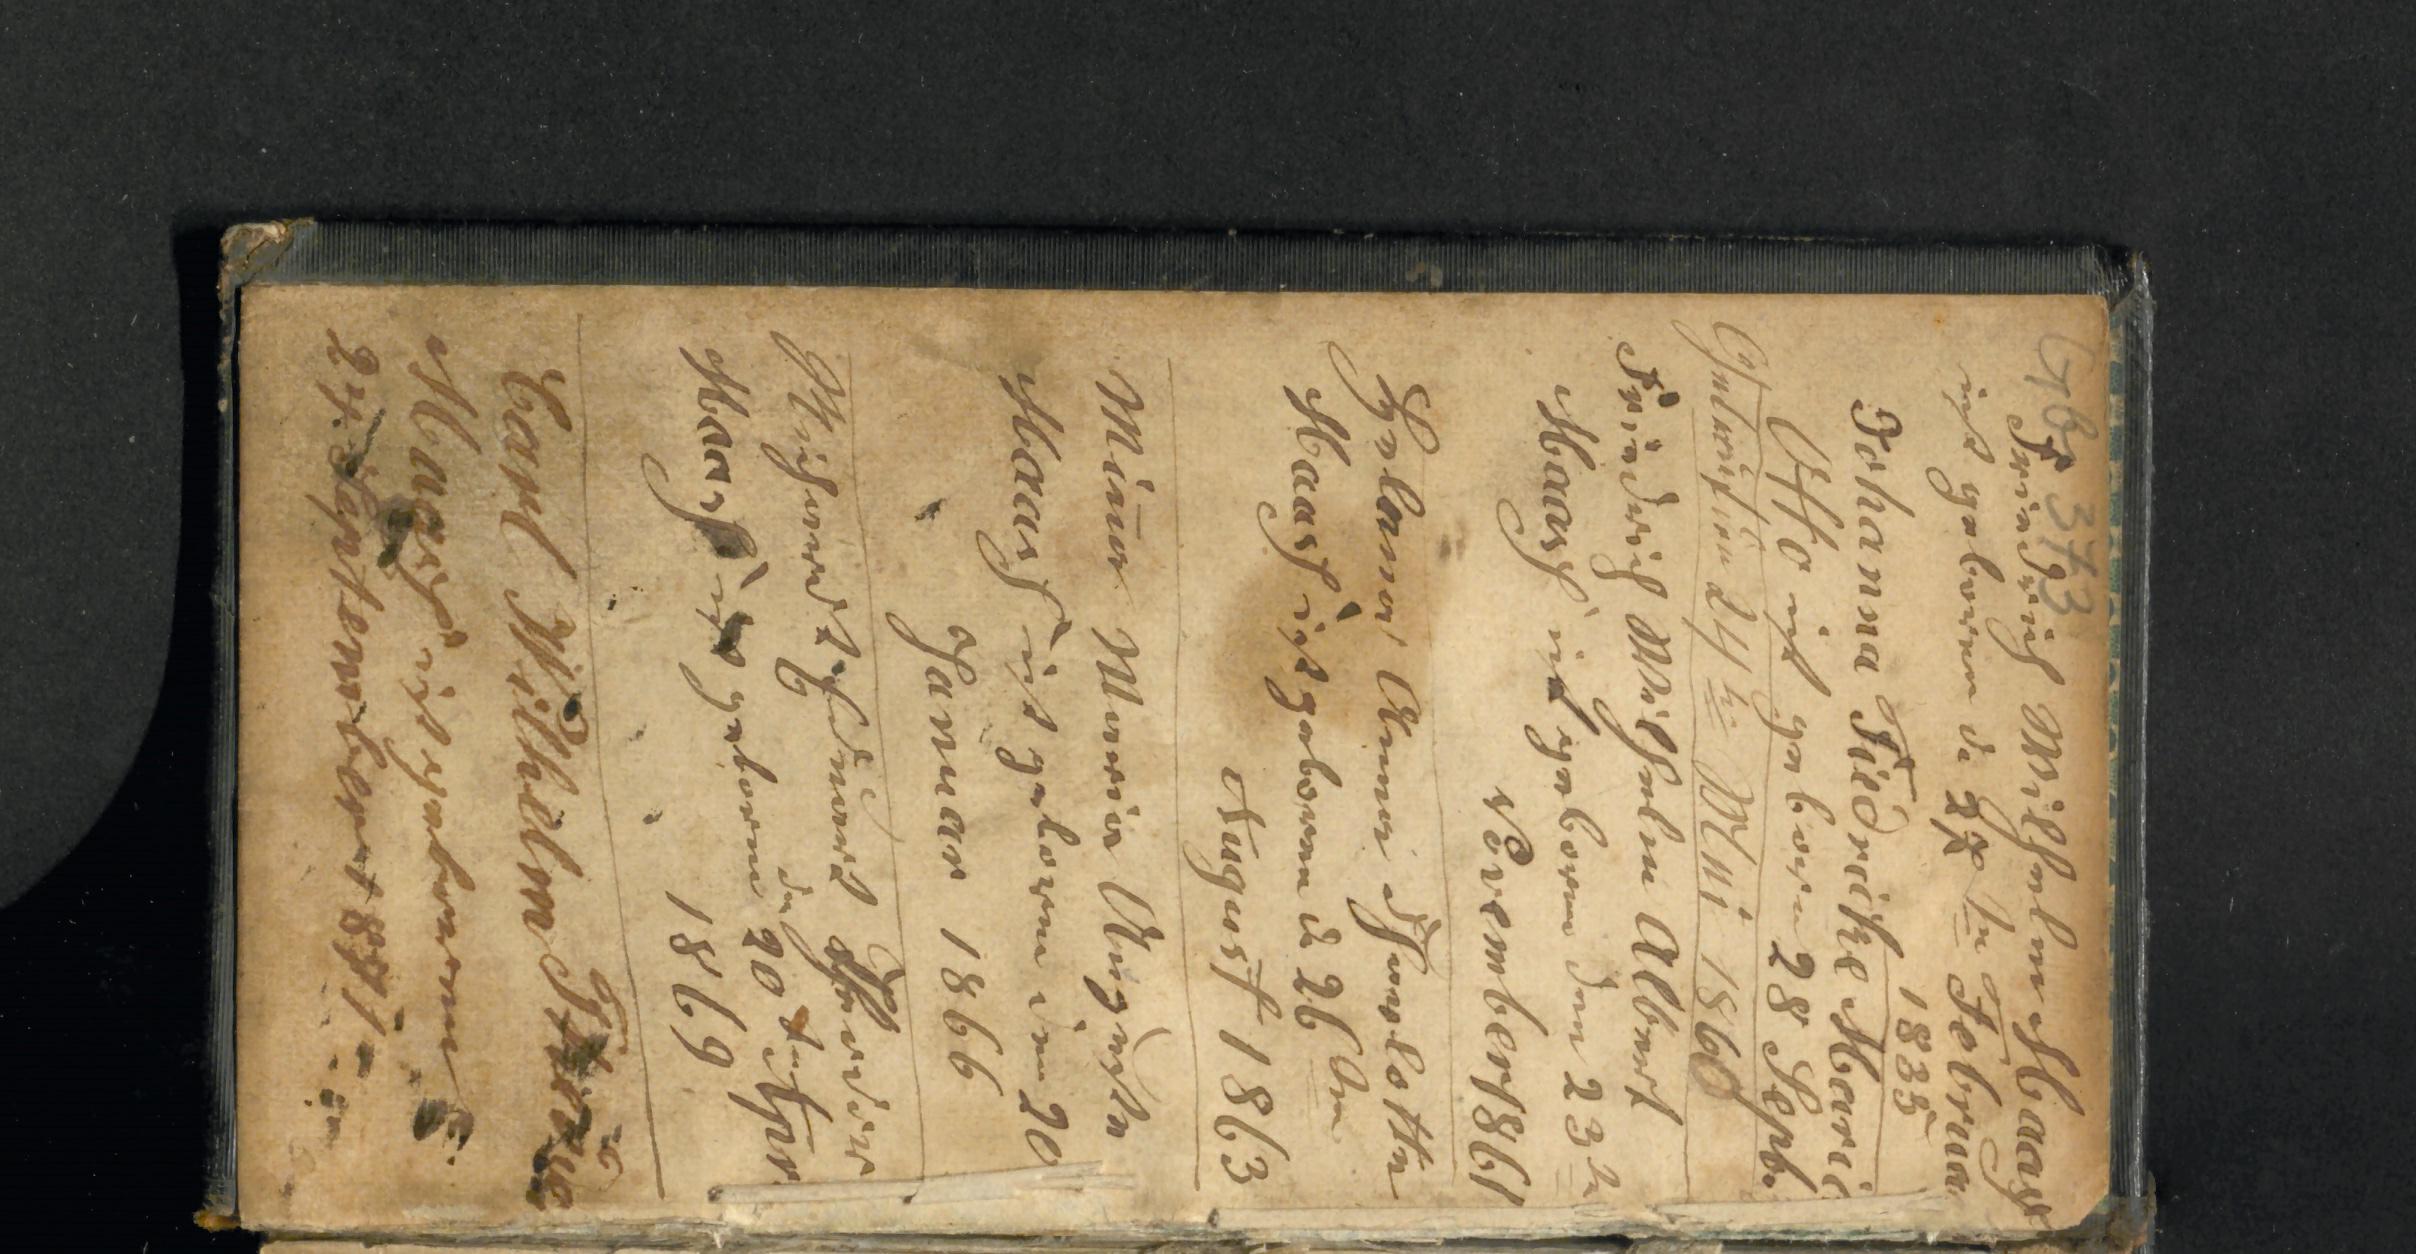 Gb 373
Friedrich Wilhelm Maass
ist geboren d. 27 tn Februar
1835
Johanna Friedreike Marie
Otto ist geboren 28 Sepb.
24 tn Mai 1860
Friedrich Wilhelm Albert
Maass ist geboren den 23 tn
November 1861
Helena Anna Scharlotte
Maass ist geboren d 26 ten
August 1863
Mina Maria Auguste
Maass ist geboren den 20
Januar 1866
Richardt Eduard
Maass ist geboren den 20 ten Apr
1869
Carl Wilhelm
Maass ist geboren
27. September 1871